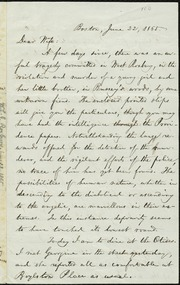 Boston, June 22, 1865.
Dear Wife:
A few days since, there was an aw-
ful tragedy committed in West Roxbury, in the
violation and murder of a young girl and
her little brother, in Bussey's woods, by one
unknown fiend. The enclosed printed slips
will give you the particulars, though you may
have had the intelligence through the Provi-
dence papers. Notwithstanding the large re-
wards offered for the detection of the mur-
derer, and the vigilant effort of the police,
no trace of him has yet been found. The
possibilities of human nature, whether in
descending to the diabolical or ascending
to the angelic, are marvellous in their ex-
treme. In this instance depravity seems
to have reached its lowest round.
To-day I am to dine at the
I met Georgina in the street yesterday,
and she reported all as comfortable at
Boylston Place as usual.